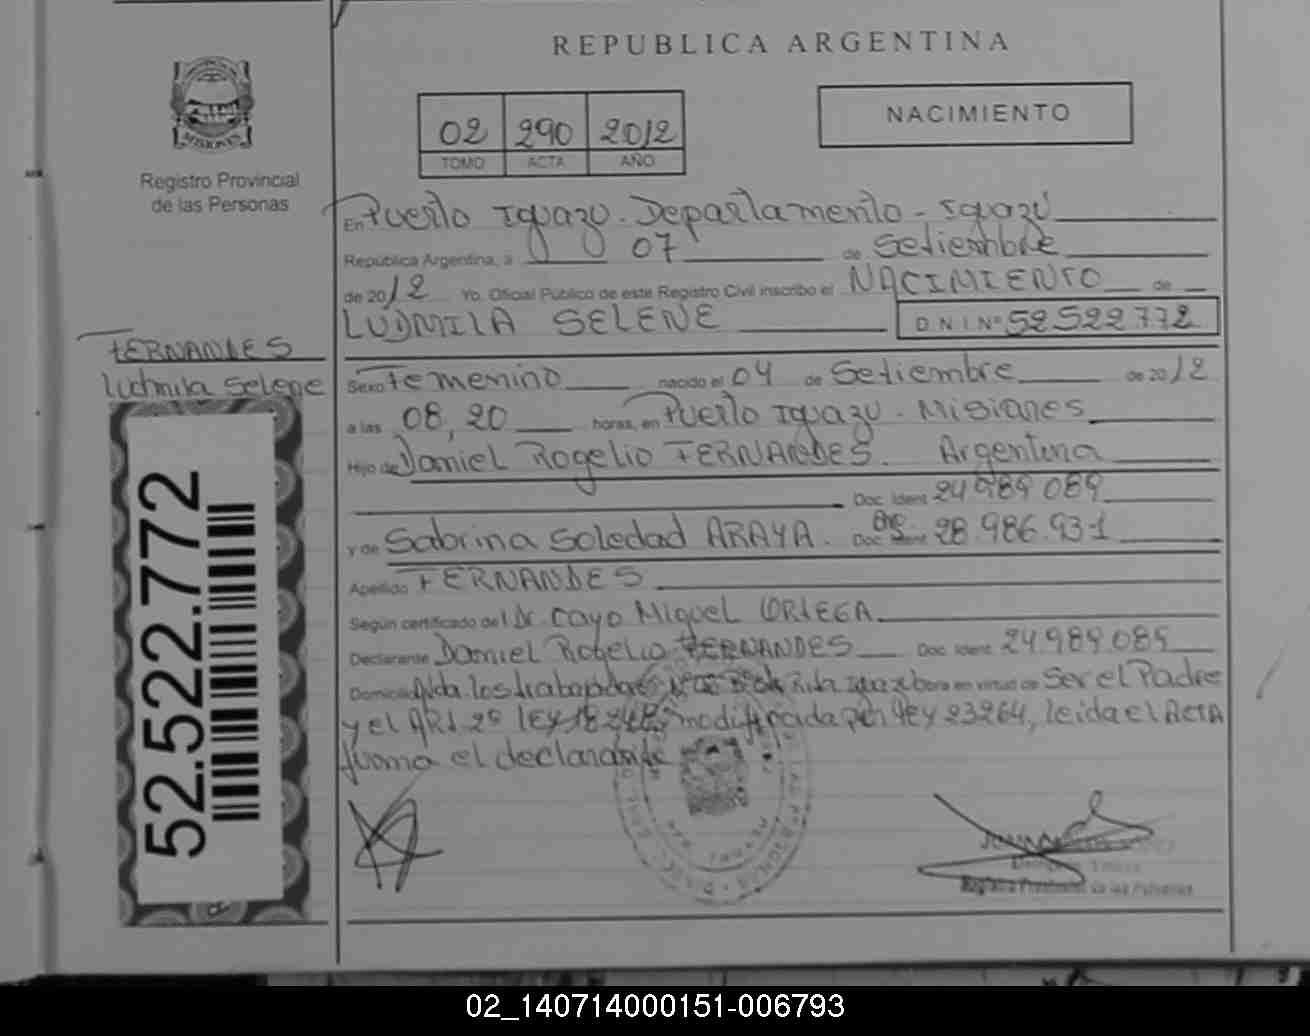 REPUBLICA ARGENTINA
MISIONES
Registro Provincial
de las Personas
02 290 2012
TOMO ACTA AÑO
NACIMIENTO
En Puerto Iguazu. Departamento - Iguazú
República Argentina, a 07 de Setiembre
de 2012 Yo, Oficial Público de este Registro Civil inscribo el NACIMIENTO de
LUDMILA SELENE D N I Nº 52522772
FERNANDES
Ludmila Selene
Sexo Femenino nacido el 04 de Setiembre de 2012
a las 08,20 horas, en Puerto Iguazu - Misiones
Hijo de Daniel Rogelio FERNANDES. Argentina
Doc. Ident. 24989089
y de Sabrina Soledad ARAYA. Arg. Doc. Ident. 28.986.931
Apellido FERNANDES
Según certificado del Dr. Cayo Miguel ORTEGA
Declarante Daniel Rogelio FERNANDES Doc. Ident. 24989089
Domicilio Avda. los trabajadores Iguazú en virtud de Ser el Padre
y el ARt 2º lEY 18248, modificada por lEY 23264, leida el ACTA
firma el declarante
52.522.772
Registro Provincial de las Personas
02_140714000151-006793